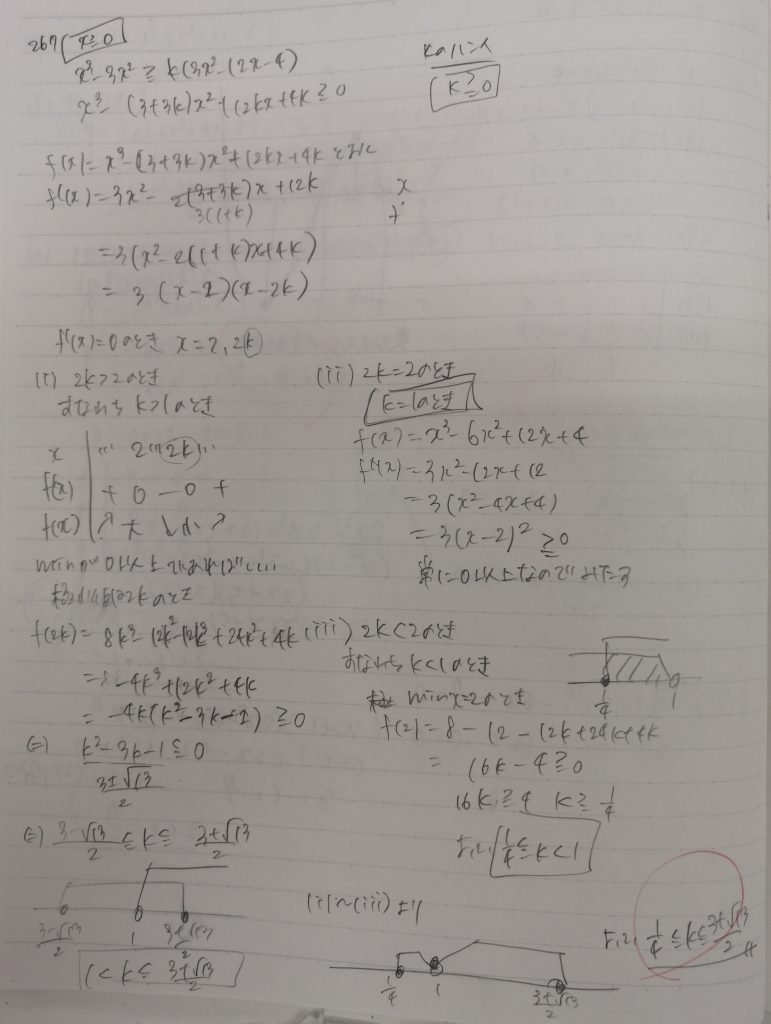 267 x≧0
x³-3x²≧k(3x²-12x-4)
x³-(3+3k)x²+12kx+4k≧0
kのハンイ
k≧0
f(x)=x³-(3+3k)x²+12kx+4kとおく
f'(x)=3x²-2(3+3k)x+12k
3(1+k)
x
f'
=3(x²-2(1+k)x+4k)
=3(x-2)(x-2k)
f'(x)=0のとき x=2,2k
(i) 2k>2のとき
すなわちk>1のとき
x … 2 … 2k …
f'(x) + 0 - 0 +
f(x) ↗ 大 ↘ 小 ↗
minが0以上であればいい
2kのとき
f(2k)=8k³-12k²-12k³+24k²+4k
=-4k³+12k²+4k
=-4k(k²-3k-1)≧0
⇔ k²-3k-1≦0
3±√13/2
⇔ 3-√13/2≦k≦3+√13/2
3-√13/2 1 3+√13/2
1<k≦3+√13/2
(ii) 2k=2のとき
k=1のとき
f(x)=x³-6x²+12x+4
f'(x)=3x²-12x+12
=3(x²-4x+4)
=3(x-2)²≧0
常に0以上なのでみたす
(iii) 2k<2のとき
すなわちk<1のとき
minx=2のとき
f(2)=8-12-12k+24k+4k
=16k-4≧0
16k≧4 k≧1/4
よって 1/4≦k<1
1/4 1
(i)~(iii)より
1/4 1 3+√13/2
よって 1/4≦k≦3+√13/2